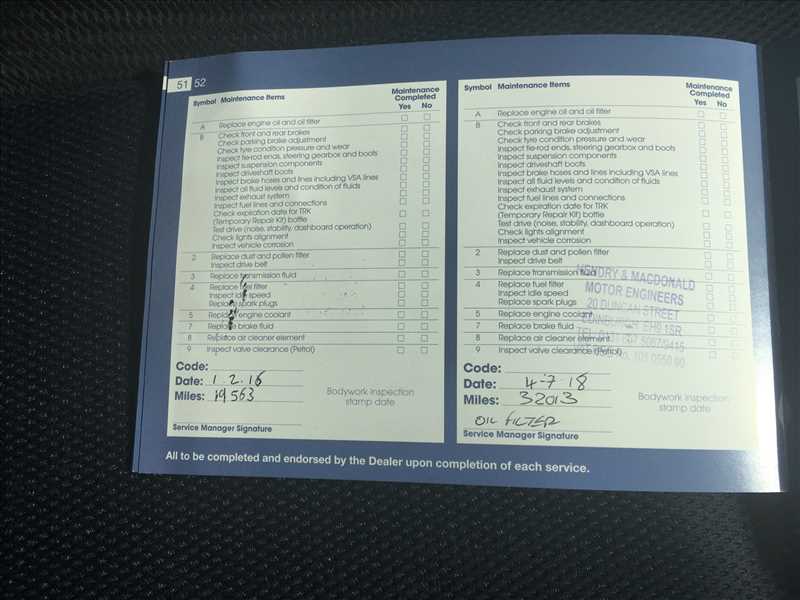 51 52
Symbol Maintenance Items Maintenance Completed
Yes No
A Replace engine oil and oil filter
B Check front and rear brakes
Check parking brake adjustment
Check tyre condition pressure and wear
Inspect tie-rod ends, steering gearbox and boots
Inspect suspension components
Inspect driveshaft boots
Inspect brake hoses and lines including VSA lines
Inspect all fluid levels and condition of fluids
Inspect exhaust system
Inspect fuel lines and connections
Check expiration date for TRK
(Temporary Repair Kit) bottle
Test drive (noise, stability, dashboard operation)
Check lights alignment
Inspect vehicle corrosion
2 Replace dust and pollen filter
Inspect drive belt
3 Replace transmission fluid
4 Replace fuel filter
Inspect idle speed
Replace spark plugs
5 Replace engine coolant
7 Replace brake fluid
8 Replace air cleaner element
9 Inspect valve clearance (Petrol)
Code:
Date: 1.2.16
Miles: 19563
Bodywork inspection
stamp date
Service Manager Signature
Symbol Maintenance Items Maintenance Completed
Yes No
A Replace engine oil and oil filter
B Check front and rear brakes
Check parking brake adjustment
Check tyre condition pressure and wear
Inspect tie-rod ends, steering gearbox and boots
Inspect suspension components
Inspect driveshaft boots
Inspect brake hoses and lines including VSA lines
Inspect all fluid levels and condition of fluids
Inspect exhaust system
Inspect fuel lines and connections
Check expiration date for TRK
(Temporary Repair Kit) bottle
Test drive (noise, stability, dashboard operation)
Check lights alignment
Inspect vehicle corrosion
2 Replace dust and pollen filter
Inspect drive belt
3 Replace transmission fluid
4 Replace fuel filter
Inspect idle speed
Replace spark plugs
5 Replace engine coolant
7 Replace brake fluid
8 Replace air cleaner element
9 Inspect valve clearance (Petrol)
& MACDONALD
MOTOR ENGINEERS
20 DUNCAN STREET
EDINBURGH EH9 1SR
Code:
Date: 4-7-18
Miles: 32013
Bodywork inspection
stamp date
OIL FILTER
Service Manager Signature
All to be completed and endorsed by the Dealer upon completion of each service.